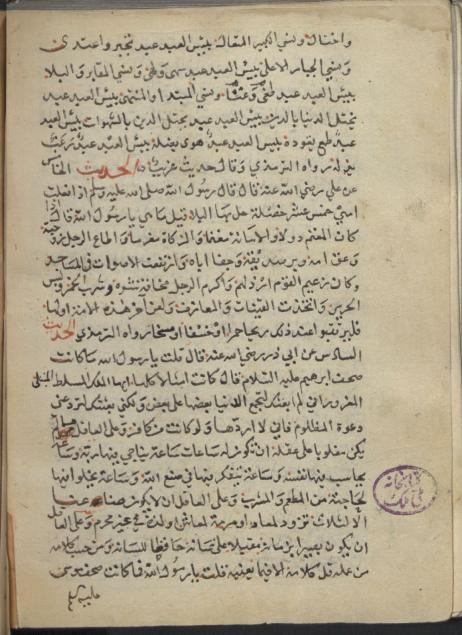 واختال ونسي الكبير المتعال بيس العبد عبد تجبر واعتدى
ونسي الجبار الاعلى بيس العبد عبد سهى ولهى ونسي المقابر والبلا
بيس العبد عبد طغى وعتا ونسي المبتدا والمنتهى بيس العبد عبد
يختل الدنيا بالدين بيس العبد عبد يختل الدين بالشهوات بيس العبد
عبد طمع يقوده بيس العبد عبد هوى يضله بيس العبد عبد رغب
يذله رواه الترمذي وقال حديث غريب الحديث الخامس
عن علي رضي الله عنه قال قال رسول الله صلى الله عليه وسلم اذا فعلت
امتي خمس عشرة خصلة حل بها البلا قيل ما هي يا رسول الله قال اذا
كان المغنم دولا والامانة مغنما والزكاة مغرما واطاع الرجل زوجته
وعق امه وبر صديقه وجفا اباه وارتفعت الاصوات في المساجد
وكان زعيم القوم ارذلهم واكرم الرجل مخافة شره وشرب الخمر ولبس
الحرير واتخذت القينات والمعازف ولعن اخر هذه الامة اولها
فليرتقبوا عند ذلك ريحا حمرا او خسفا او مسخا رواه الترمذي الحديث
السادس عن ابي ذر رضي الله عنه قال قلت يا رسول الله ما كانت
صحف ابرهيم عليه السلام قال كانت امثالا كلها ايها الملك المسلط المبتلى
المغرور اني لم ابعثك لتجمع الدنيا بعضها على بعض ولكني بعثتك لترد عني
دعوة المظلوم فاني لا اردها ولو كانت من كافر وعلى العاقل ما لم
يكن مغلوبا على عقله ان تكون له ساعات ساعة يناجي فيها ربه وساعة
يحاسب فيها نفسه وساعة يتفكر فيها في صنع الله وساعة يخلو فيها
لحاجته من المطعم والمشرب وعلى العاقل ان لا يكون ظاعنا
الا لثلاث تزود لمعاد او مرمة لمعاش او لذة في غير محرم وعلى العاقل
ان يكون بصيرا بزمانه مقبلا على شانه حافظا للسانه ومن حسب كلامه
من عمله قل كلامه الا فيما يعنيه قلت يا رسول الله فما كانت صحف موسى
عليه